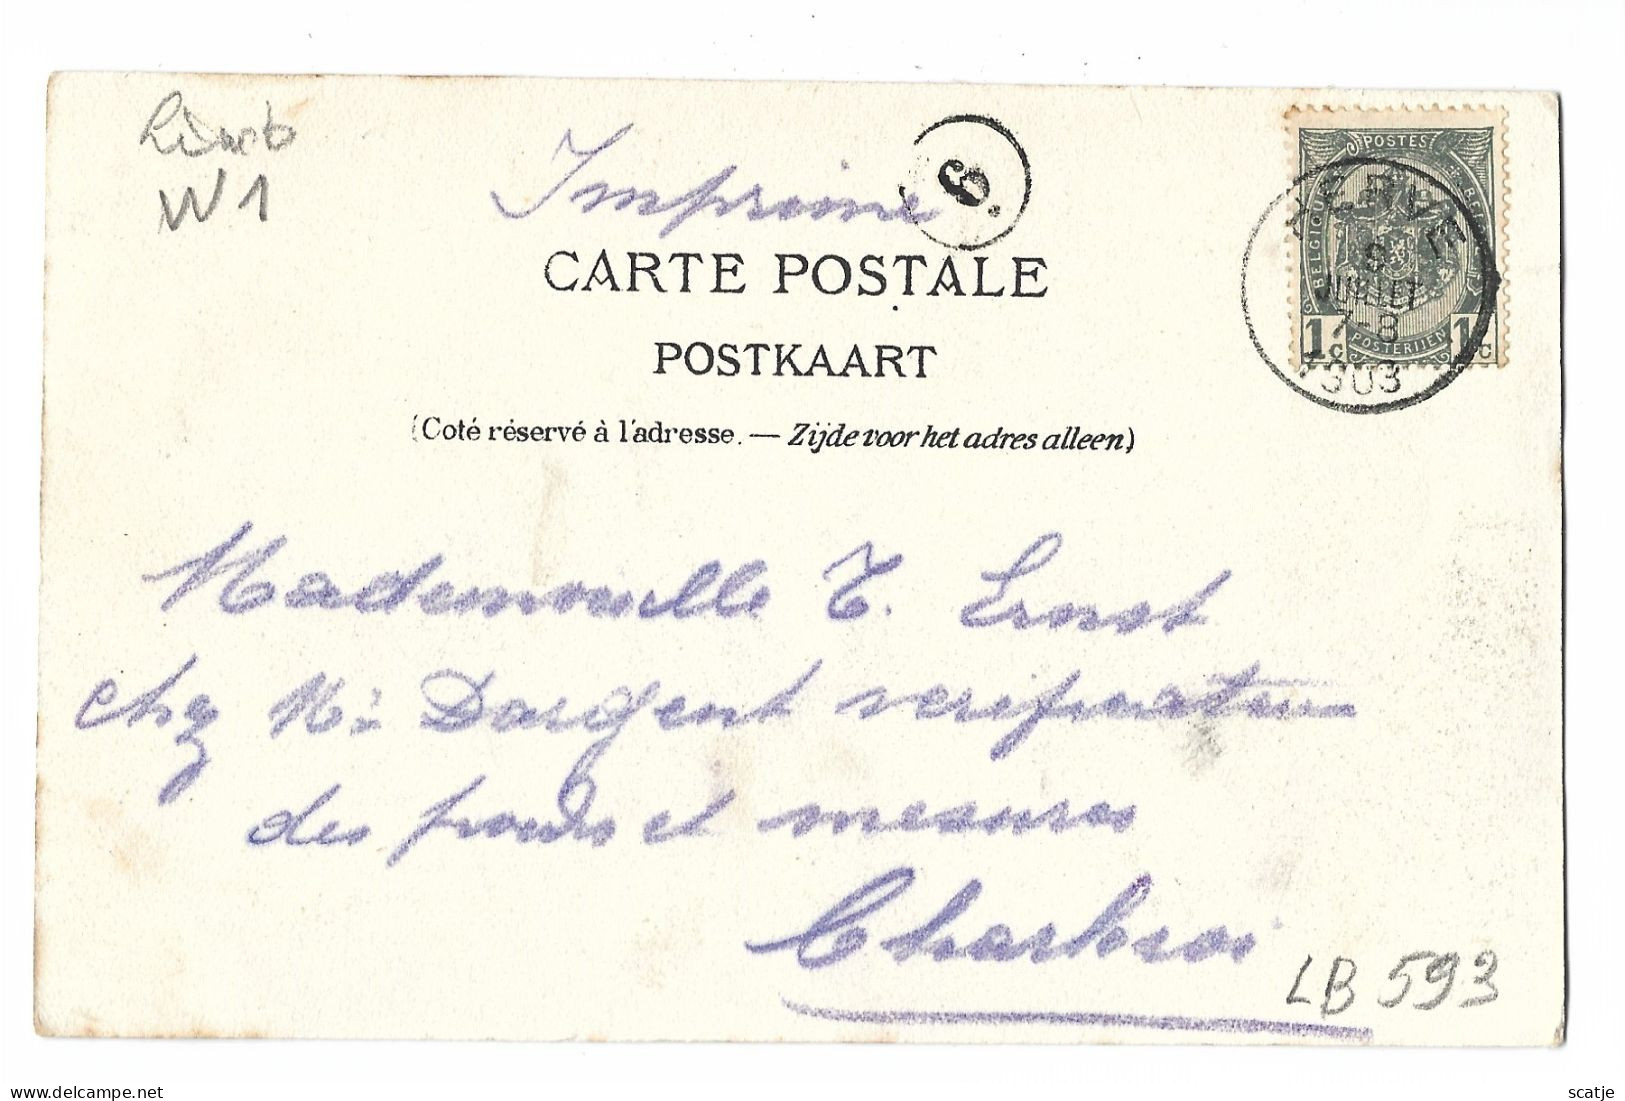 W1
Imprimé
6.
CARTE POSTALE
POSTKAART
(Coté réservé à l'adresse. — Zijde voor het adres alleen)
POSTES
BELGIQUE
BELGIË
1 1c
POSTERIJEN
HERVE
8
JUILLET
7-8
1903
Mademoiselle T. Ernst
chez Mr Dargent verificateur
des poids et mesures
Charleroi
LB 593
scatje